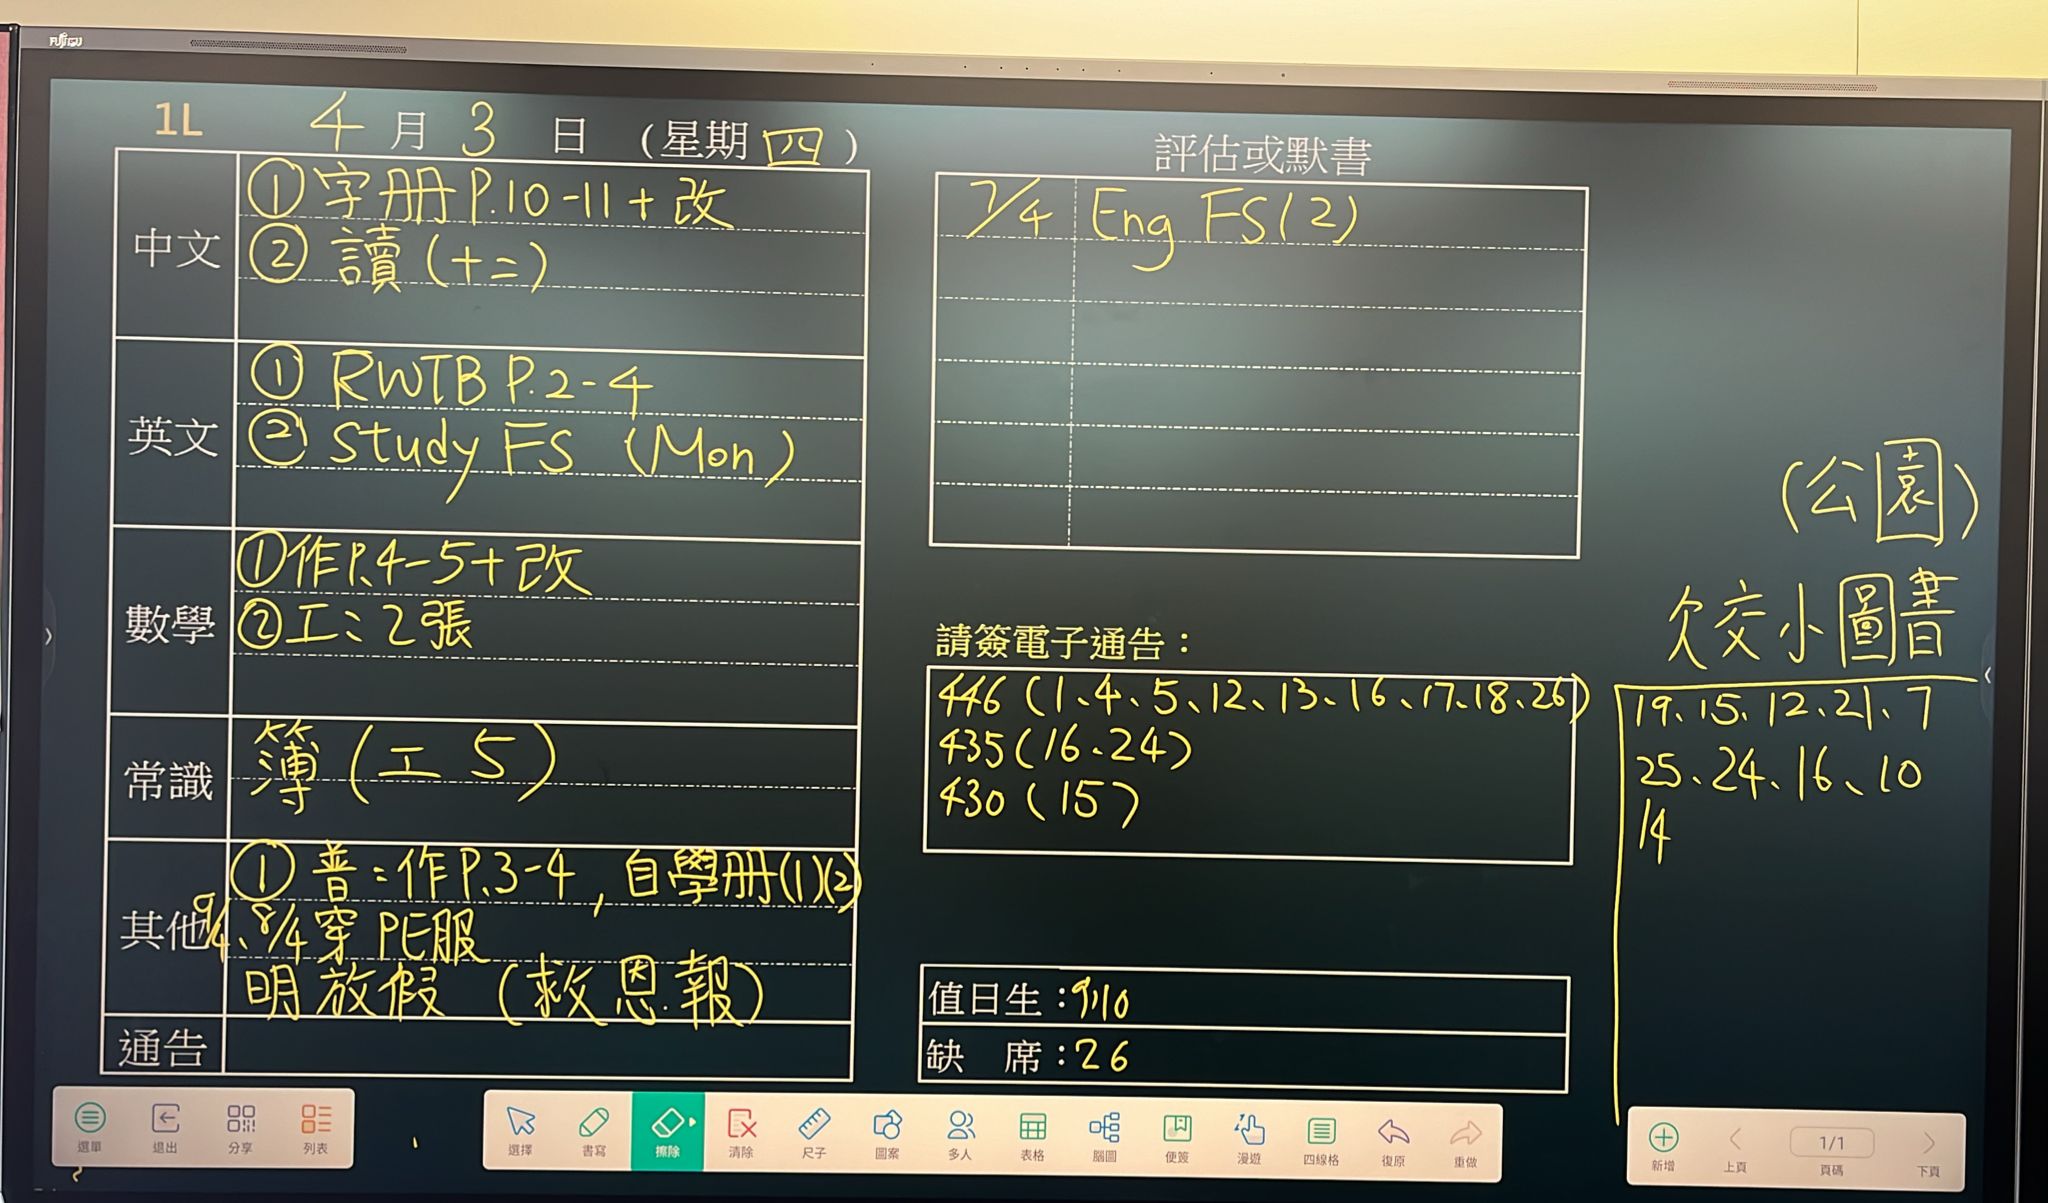 FUJITSU
1L 4月3日(星期四)
中文
①字册P.10-11+改
②讀(十二)
英文
①RWTB P.2-4
②Study FS (Mon)
數學
①作P.4-5+改
②工:2張
常識
簿(工5)
其他
①普:作P.3-4,自學册(1)(2)
9/4、8/4穿PE服
明放假(救恩.報)
通告
評估或默書
7/4 Eng FS(2)
請簽電子通告:
446(1、4、5、12、13、16、17、18、26)
435(16、24)
430(15)
值日生:9,10
缺 席:26
(公園)
欠交小圖書
19、15、12、21、7
25、24、16、10
14
選單 退出 分享 列表
選擇 書寫 擦除 清除 尺子 圖案 多人 表格 腦圖 便簽 漫遊 四線格 復原 重做
新增 上頁 1/1 頁碼 下頁